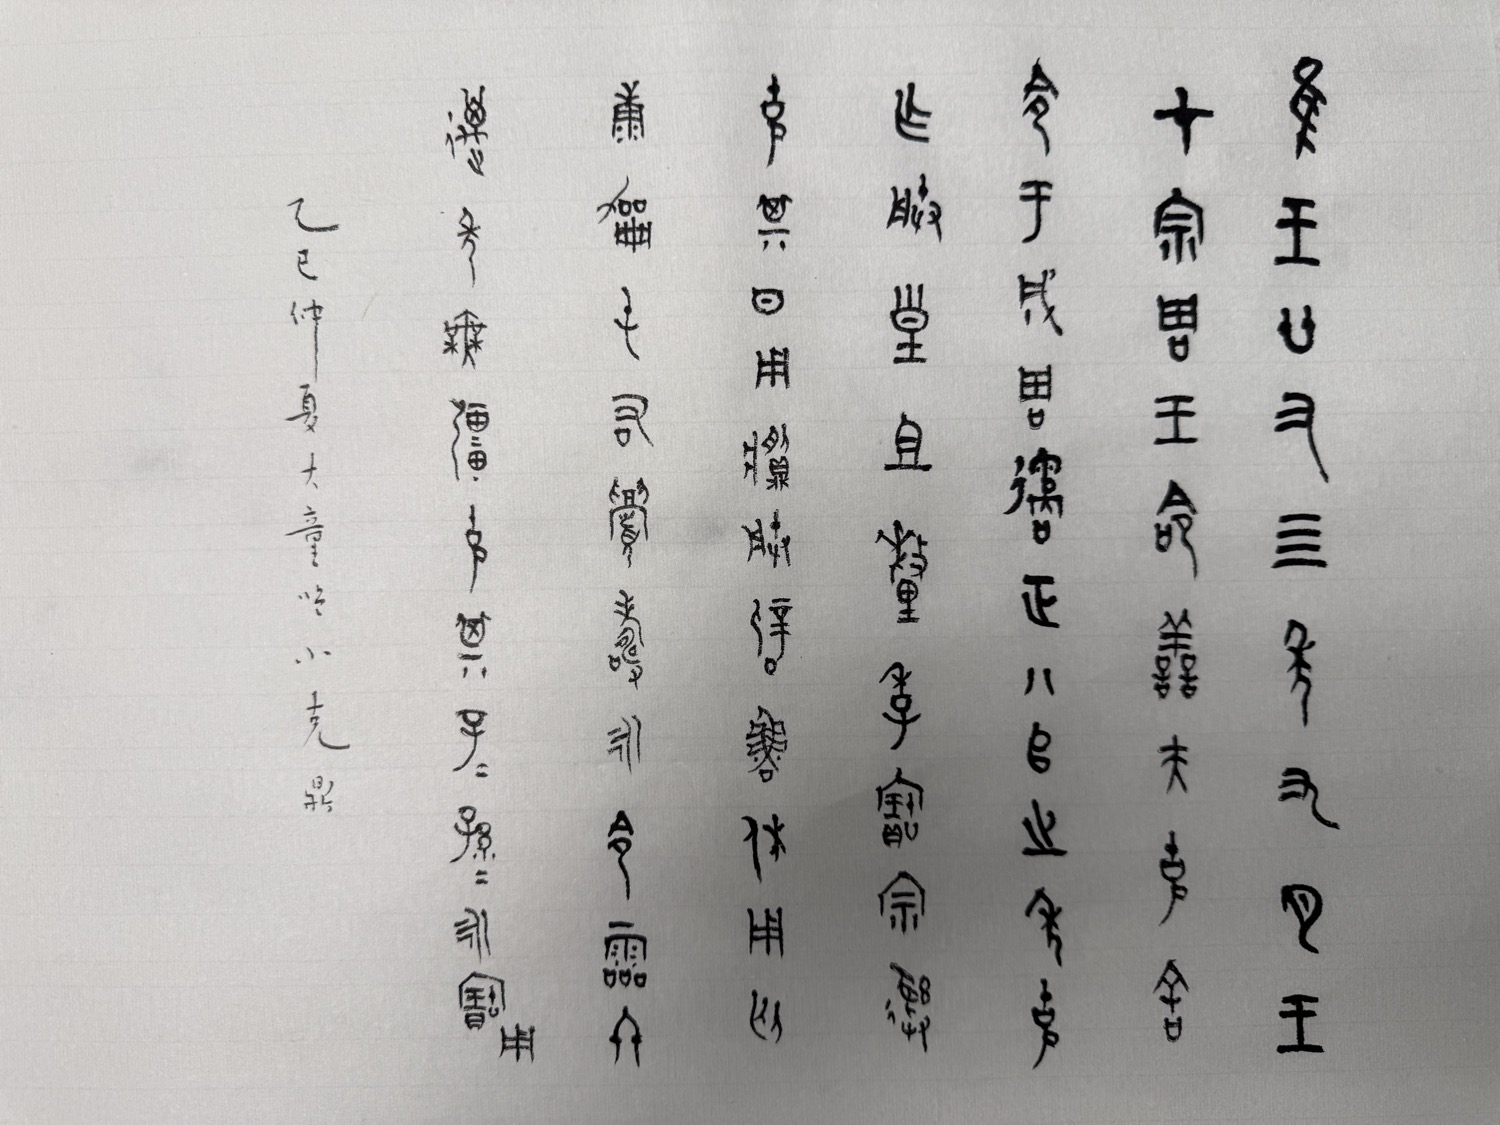 隹王廿又三年九月王
才宗周王命善夫克舍
令于成周遹正八𠂤之年克
乍朕皇且釐季寶宗彝
克其日用𩰬朕辟魯休用匄
康勱屯右眉壽永令霝冬
邁年無疆克其子=孫=永寶用
乙巳仲夏大童临小克鼎